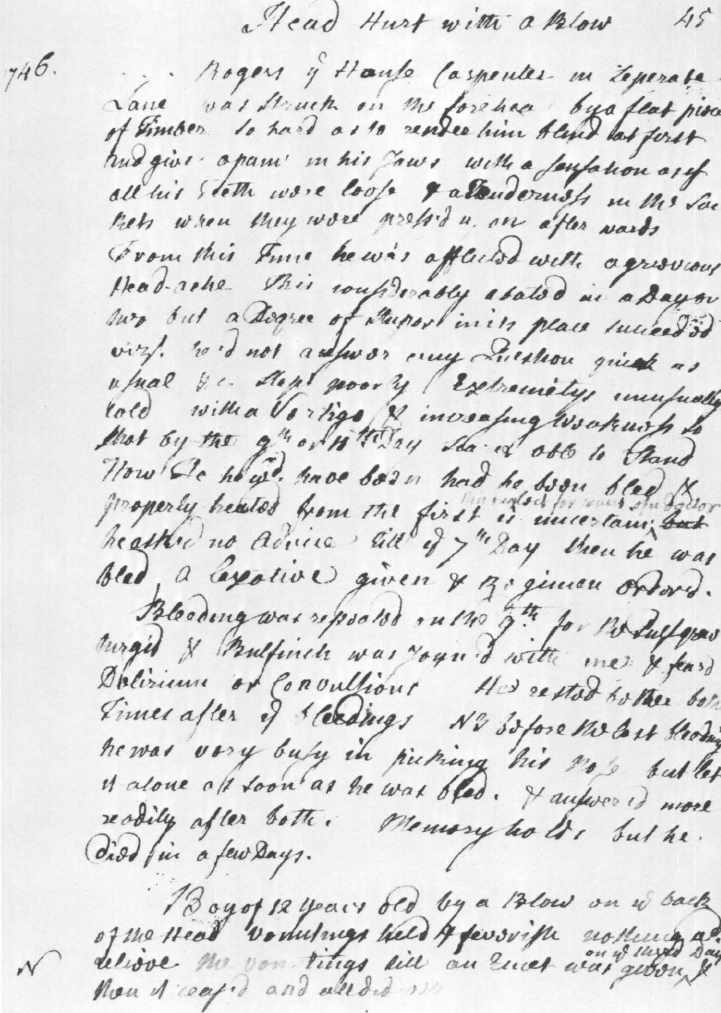 Head Hurt with a Blow 45
746.
Rogers ye House Carpenter in Leverets
Lane was struck on the forehea by a flat piece
of Timber so hard as to render him blind at first
and give a pain in his Jaws with a sensation as if
all his Teeth were loose & a Tenderness in the Soc
kets when they were press'd upon after wards
From this Time he was afflicted with a grievous
Head-ache this considerably abated in a Day or
two but a Degree of Stupor in its place succeeded
vizt. he'd not answer any Question quick as
usual &c slept poorly Extremitys unusually
cold with a Vertigo & increasing Weakness so
that by the 9th or Day able to Stand
How he wd. have been had he been bled &
properly treated from the first is uncertain, but
he asked no Advice till ye 7th Day then he was
the neglect for want of a Doctor
bled, a Laxative given & Regimen Order'd.
Bleeding was repeated on the 9th. for the Pulse grew
turgid & Bulfinch was Joyn'd with me & fear'd
Delirium or Convulsions He rested better both
Times after ye bleedings NB before the last bleeding
he was very busy in picking his Nose but let
it alone as soon as he was bled. & answer'd more
readily after both. Memory holds but he
died in a few Days.
Boy of 12 years old by a Blow on ye back
of the Head vomitings held & feverish nothing
on ye third Day
N relieve the vomitings till an Emet was given &
then it ceas'd and all did